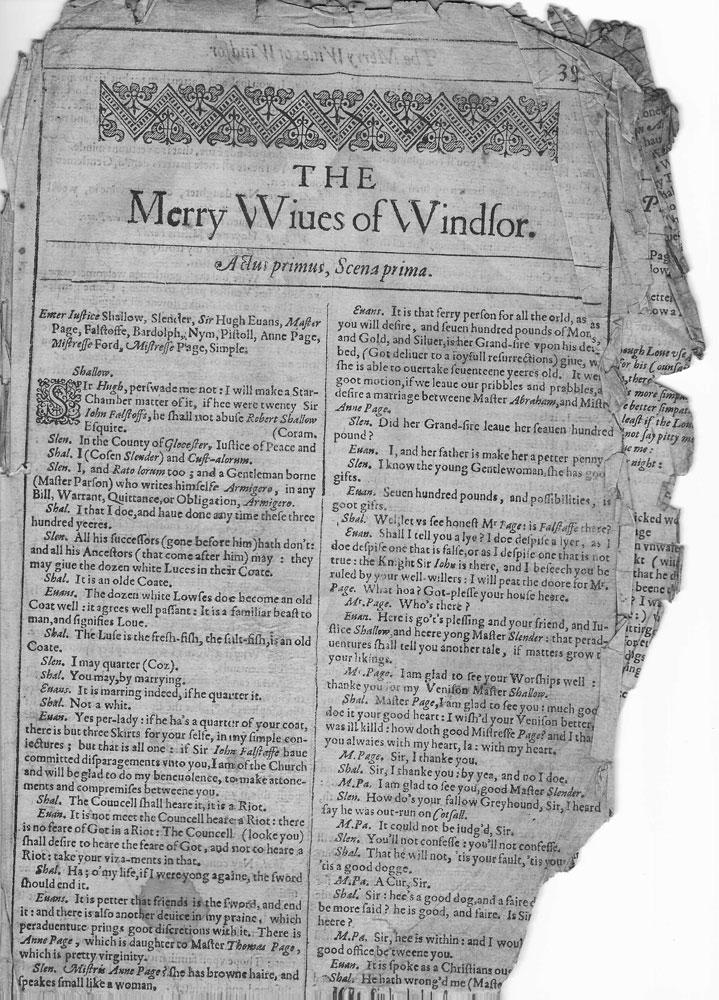 39
THE
Merry Wiues of Windſor.
Actus primus, Scena prima.
Enter Iuſtice Shallow, Slender, Sir Hugh Euans, Maſter
Page, Falſtoffe, Bardolph, Nym, Piſtoll, Anne Page,
Miſtreſſe Ford, Miſtreſſe Page, Simple.
Shallow.
SIr Hugh, perſwade me not: I will make a Star-
Chamber matter of it, if hee were twenty Sir
Iohn Falſtoffs, he ſhall not abuſe Robert Shallow
Eſquire. (Coram.
Slen. In the County of Gloceſter, Iuſtice of Peace and
Shal. I (Coſen Slender) and Cuſt-alorum.
Slen. I, and Rato lorum too; and a Gentleman borne
(Maſter Parſon) who writes himſelfe Armigero, in any
Bill, Warrant, Quittance, or Obligation, Armigero.
Shal. I that I doe, and haue done any time theſe three
hundred yeeres.
Slen. All his ſucceſſors (gone before him) hath don't:
and all his Anceſtors (that come after him) may: they
may giue the dozen white Luces in their Coate.
Shal. It is an olde Coate.
Euans. The dozen white Lowſes doe become an old
Coat well: it agrees well paſſant: It is a familiar beaſt to
man, and ſignifies Loue.
Shal. The Luſe is the freſh-fiſh, the ſalt-fiſh, is an old
Coate.
Slen. I may quarter (Coz).
Shal. You may, by marrying.
Euans. It is marring indeed, if he quarter it.
Shal. Not a whit.
Euan. Yes per-lady: if he ha's a quarter of your coat,
there is but three Skirts for your ſelfe, in my ſimple con-
iectures; but that is all one: if Sir Iohn Falſtaffe haue
committed diſparagements vnto you, I am of the Church
and will be glad to do my beneuolence, to make attone-
ments and compremiſes betweene you.
Shal. The Councell ſhall heare it, it is a Riot.
Euan. It is not meet the Councell heare a Riot: there
is no feare of Got in a Riot: The Councell (looke you)
ſhall deſire to heare the feare of Got, and not to heare a
Riot: take your viza-ments in that.
Shal. Ha; o'my life, if I were yong againe, the ſword
ſhould end it.
Euans. It is petter that friends is the ſword, and end
it: and there is alſo another deuice in my praine, which
peraduenture prings goot diſcretions with it. There is
Anne Page, which is daughter to Maſter Thomas Page,
which is pretty virginity.
Slen. Miſtris Anne Page? ſhe has browne haire, and
ſpeakes ſmall like a woman.
Euans. It is that ferry perſon for all the orld, as
you will deſire, and ſeuen hundred pounds of
and Gold, and Siluer, is her Grand-ſire vpon his
bed, (Got deliuer to a ioyfull reſurrections) giue,
ſhe is able to ouertake ſeuenteene yeeres old. It
goot motion, if we leaue our pribbles and prabbles,
deſire a marriage betweene Maſter Abraham, and
Anne Page.
Slen. Did her Grand-ſire leaue her ſeauen hundred
pound?
Euan. I, and her father is make her a petter penny
Slen. I know the young Gentlewoman, ſhe has
gifts.
Euan. Seuen hundred pounds, and poſſibilities, is
goot gifts.
Shal. Wel, let vs ſee honeſt Mr Page: is Falſtaffe there?
Euan. Shall I tell you a lye? I doe deſpiſe a lyer, as I
doe deſpiſe one that is falſe, or as I deſpiſe one that is not
true: the Knight Sir Iohn is there, and I beſeech you be
ruled by your well-willers: I will peat the doore for Mr.
Page. What hoa? Got-pleſſe your houſe heere.
Mr. Page. Who's there?
Euan. Here is go't's pleſſing and your friend, and Iu-
ſtice Shallow, and heere yong Maſter Slender: that perad-
uentures ſhall tell you another tale, if matters grow
your likings.
Mr. Page. I am glad to ſee your Worſhips well:
thanke you for my Veniſon Maſter Shallow.
Shal. Maſter Page, I am glad to ſee you: much good
doe it your good heart: I wiſh'd your Veniſon better,
was ill killd: how doth good Miſtreſſe Page? and I
you alwaies with my heart, la: with my heart.
M. Page. Sir, I thanke you.
Shal. Sir, I thanke you: by yea, and no I doe.
M. Pa. I am glad to ſee you, good Maſter Slender.
Slen. How do's your fallow Greyhound, Sir, I heard
ſay he was out-run on Cotſall.
M. Pa. It could not be iudg'd, Sir.
Slen. You'll not confeſſe: you'll not confeſſe.
Shal. That he will not, 'tis your fault, 'tis your
'tis a good dogge.
M. Pa. A Cur, Sir.
Shal. Sir: hee's a good dog, and a faire
be more ſaid? he is good, and faire. Is Sir
heere?
M. Pa. Sir, hee is within: and I
good office betweene you.
Euan. It is ſpoke as a Chriſtians
Shal. He hath wrong'd me